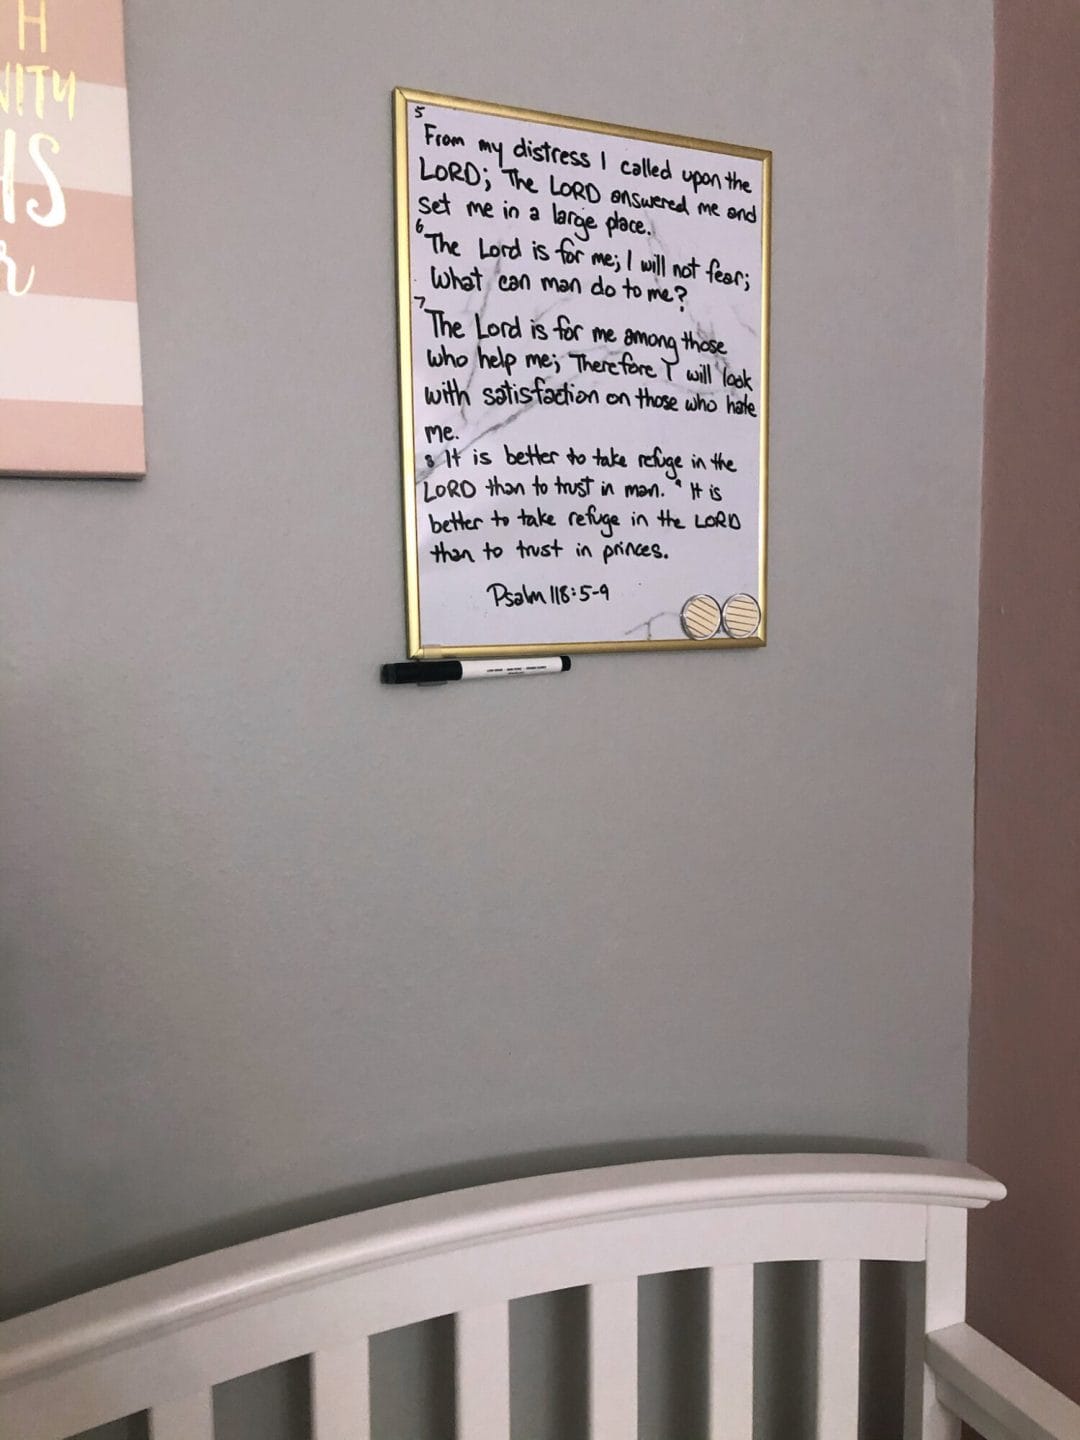 H
NITY
IS
r
5
From my distress I called upon the
LORD; The LORD answered me and
set me in a large place.
6
The Lord is for me; I will not fear;
What can man do to me?
7
The Lord is for me among those
who help me; Therefore I will look
with satisfaction on those who hate
me.
8 It is better to take refuge in the
LORD than to trust in man. 9 It is
better to take refuge in the LORD
than to trust in princes.
Psalm 118:5-9